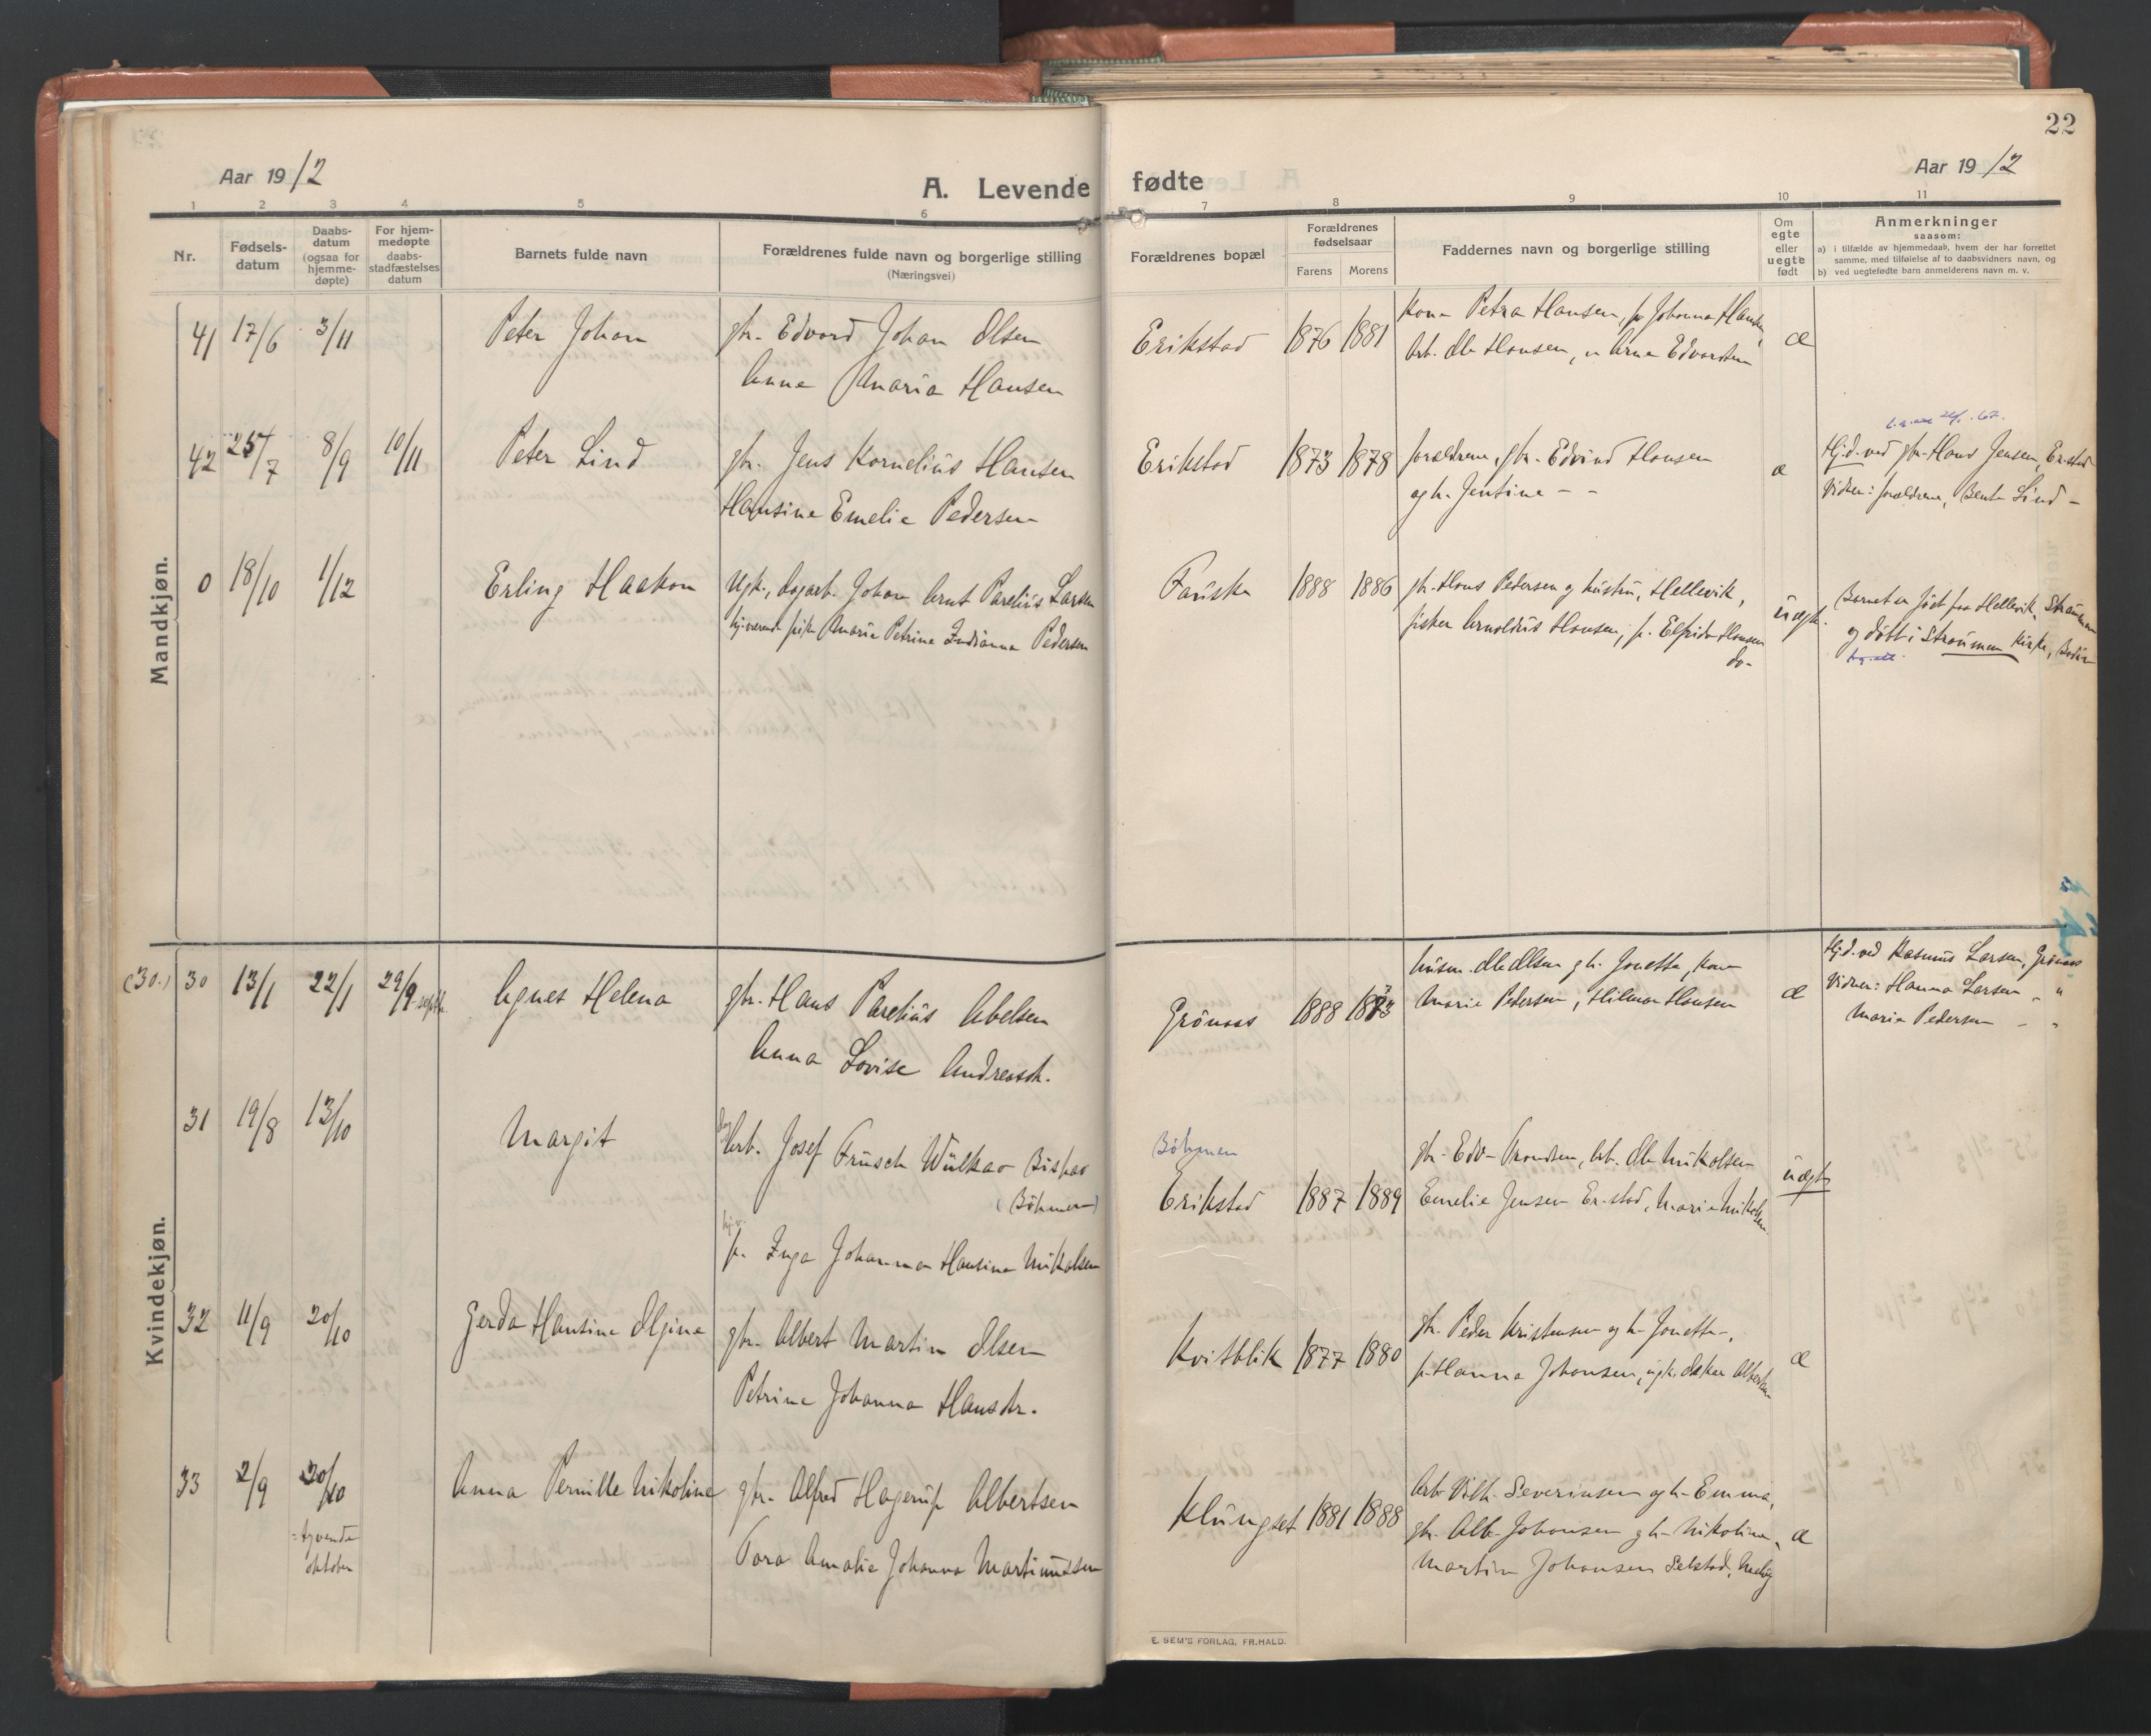 22
Aar 1912
A. Levende fødte
Aar 1912
1 2 3 4 5 6 7 8 9 10 11
Nr.
Fødsels-
datum
Daabs-
datum
(ogsaa for
hjemme-
døpte)
For hjem-
medøpte
daabs-
stadfæstelses
datum
Barnets fulde navn
Forældrenes fulde navn og borgerlige stilling
(Næringsvei)
Forældrenes bopæl
Forældrenes
fødselsaar
Farens Morens
Faddernes navn og borgerlige stilling
Om
egte
eller
uegte
født
Anmerkninger
saasom:
a) i tilfælde av hjemmedaab, hvem der har forrettet
samme, med tilføielse af to daabsvidners navn, og
b) ved uegtefødte barn anmelderens navn m. v.
Mandkjøn.
41 17/6 3/11
Peter Johan
gbr. Edvard Johan Olsen
Anna Maria Hansen
Erikstad 1876 1881
Kone Petra Hansen, p. Johanna Hansen,
Arb. Ole Hansen, u. Arne Edvardsen
æ
42 25/7 8/9 10/11
Peter Lind
gbr. Jens Kornelius Hansen
Hansine Emelie Pedersen
Erikstad 1873 1878
forældrene, gbr. Edvind Hansen
og h. Jentine - -
æ
Hj.d. ved gbr. Hans Jensen, Er.stad
Vidner: forældrene, Bent Lind -
0 18/10 1/12
Erling Haakon
Ugk., dagarb. Johan Arnt Parelius Larsen
hj.værende pike Maria Petrine Indianna Pedersen
Fauske 1888 1886
gbr. Hans Pedersen og hustru, Hellevik,
fisker Arnoldus Hansen, p. Elfrida Hansen
do-
uægt.
Barnet er født paa Hellevik, Straumen
og døbt i Straumen Kirke, Bodin
Kvindekjøn.
(30.) 30 13/1 22/1 29/9 septbr.
Agnes Helena
gbr. Hans Parelius Abelsen
Anna Lovise Andreasdr.
Grønaas 1888 1873
husm. Ole Olsen og h. Jonetta, Kone
Marie Pedersen, Hilmar Hansen
æ
Hj.d. ved Rasmus Larsen, Grønaas
Vidner: Hanna Larsen - "
Marie Pedersen - "
31 19/8 13/10
Margit
Arb. Josef Frusch Wülkao Bispao
(Böhmen)
p. Inga Johanna Hansine Nikolsen
Böhmen
Erikstad 1887 1889
gbr. Edv. Trondsen, Arb. Ole Nikolsen
Emelie Jensen Er.stad, Marie Nikolsen
uægte
32 11/9 20/10
Gerda Hansine Olgine
gbr. Albert Martin Olsen
Petrine Johanna Hansdr.
Kvitblik 1877 1880
gbr. Peder Kristensen og h. Jonetta,
p. Hanna Johansen, ugk. Oskar Albertsen
æ
33 2/9 20/10
= tyvende
oktober
Anna Pernille Nikoline
gbr. Alfred Hagerup Albertsen
Tora Amalie Johanna Martinussen
Klungset 1881 1888
Arb. Vilh. Severinsen og h. Emma,
gbr. Alb. Johansen og h. Nikoline,
Martin Johansen Selstad,
æ
E. SEM'S FORLAG, FR.HALD.